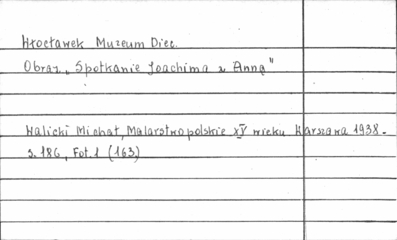 Włocławek Muzeum Diec.
Obraz „Spotkanie Joachima z Anną"
Walicki Michał, Malarstwo polskie XV wieku Warszawa 1938.
s. 186, Fot. 1 (163)